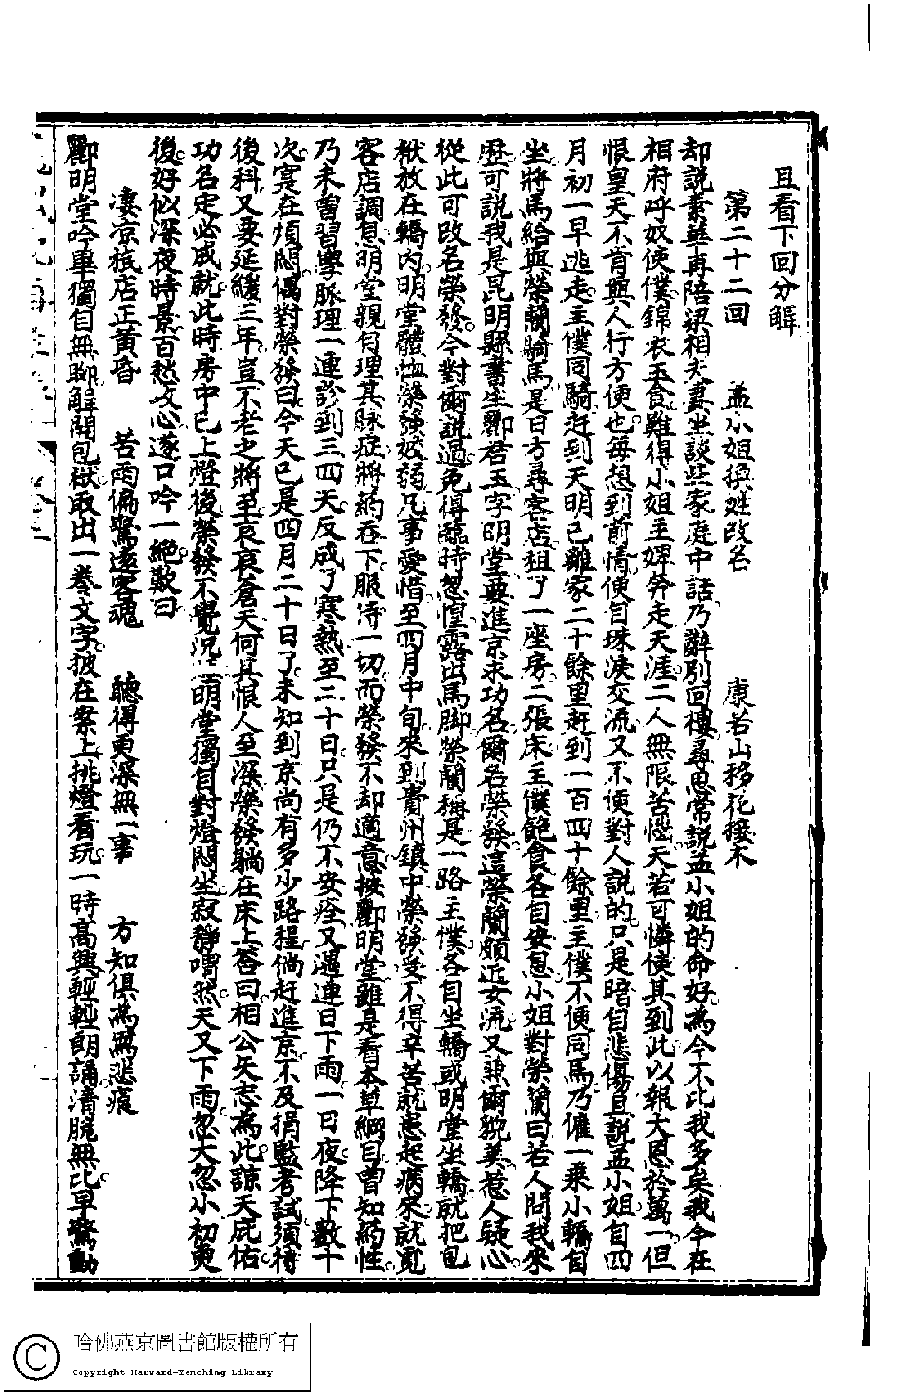 且看下回分解
第二十二回　孟小姐換姓改名　康若山移花接木
却說素華再陪梁相夫妻坐談些家庭中話乃辭別回樓尋思常說孟小姐的命好為今不比我多矣我今在
相府呼奴使僕錦衣玉食難得小姐主婢奔走天涯二人無限苦惱天若可憐使其到此以報大恩於萬一但
恨皇天不肯與人行方便也每想到前情使目珠淚交流又不便對人說的只是暗自悲傷且說孟小姐自四
月初一早逃走主僕同騎赶到天明已離家二十餘里赶到一百四十餘里主僕不便同馬乃僱一乘小轎自
坐將馬給與榮蘭騎馬是日方尋客店租了一座房二張床主僕飽食各自安息小姐對榮蘭曰若人問我來
歷可說我是昆明縣書生酈君玉字明堂要進京求功名爾名榮發這榮蘭頗近女流又兼爾貌美惹人疑心
從此可改名榮發今對爾說過免得臨時怱惶露出馬脚榮蘭稱是一路主僕各自坐轎或明堂坐轎就把包
袱放在轎內明堂體恤榮發姣弱凡事愛惜至四月中旬來到貴州鎮中榮發受不得辛苦就患起病來就覓
客店調息明堂親自理其脉症將藥吞下服侍一切而榮發不却適意按酈明堂雖是看本草綱目曾知葯性
乃未曾習學脈理一連診到三四天反成了寒熱至二十日只是仍不安痊又遇連日下雨一日夜降下數十
次寔在煩悶偶對榮發曰今天已是四月二十日了未知到京尚有多少路程倘赶進京不及捐監考試須待
後科又要延緩三年豈不老之將至哀哀蒼天何其恨人至深榮發躺在床上答曰相公矢志為此諒天庇佑
功名定必成就此時房中已上燈後榮發不覺沉　明堂獨自對燈悶坐寂靜嘈然天又下雨忽大忽小初更
後好似深夜時景百愁文心遂口吟一絕歎曰
凄凉核店正黃昏　苦雨偏驚逐客魂　聽得更深無一事　方知俱為為悲痕
酈明堂吟畢獨自無聊解開包袱取出一卷文字披在案上挑燈看玩一時高興輕輕朗誦清脆無比早驚動
哈佛燕京圖書館版權所有
Copyright Harvard-Yenching Library